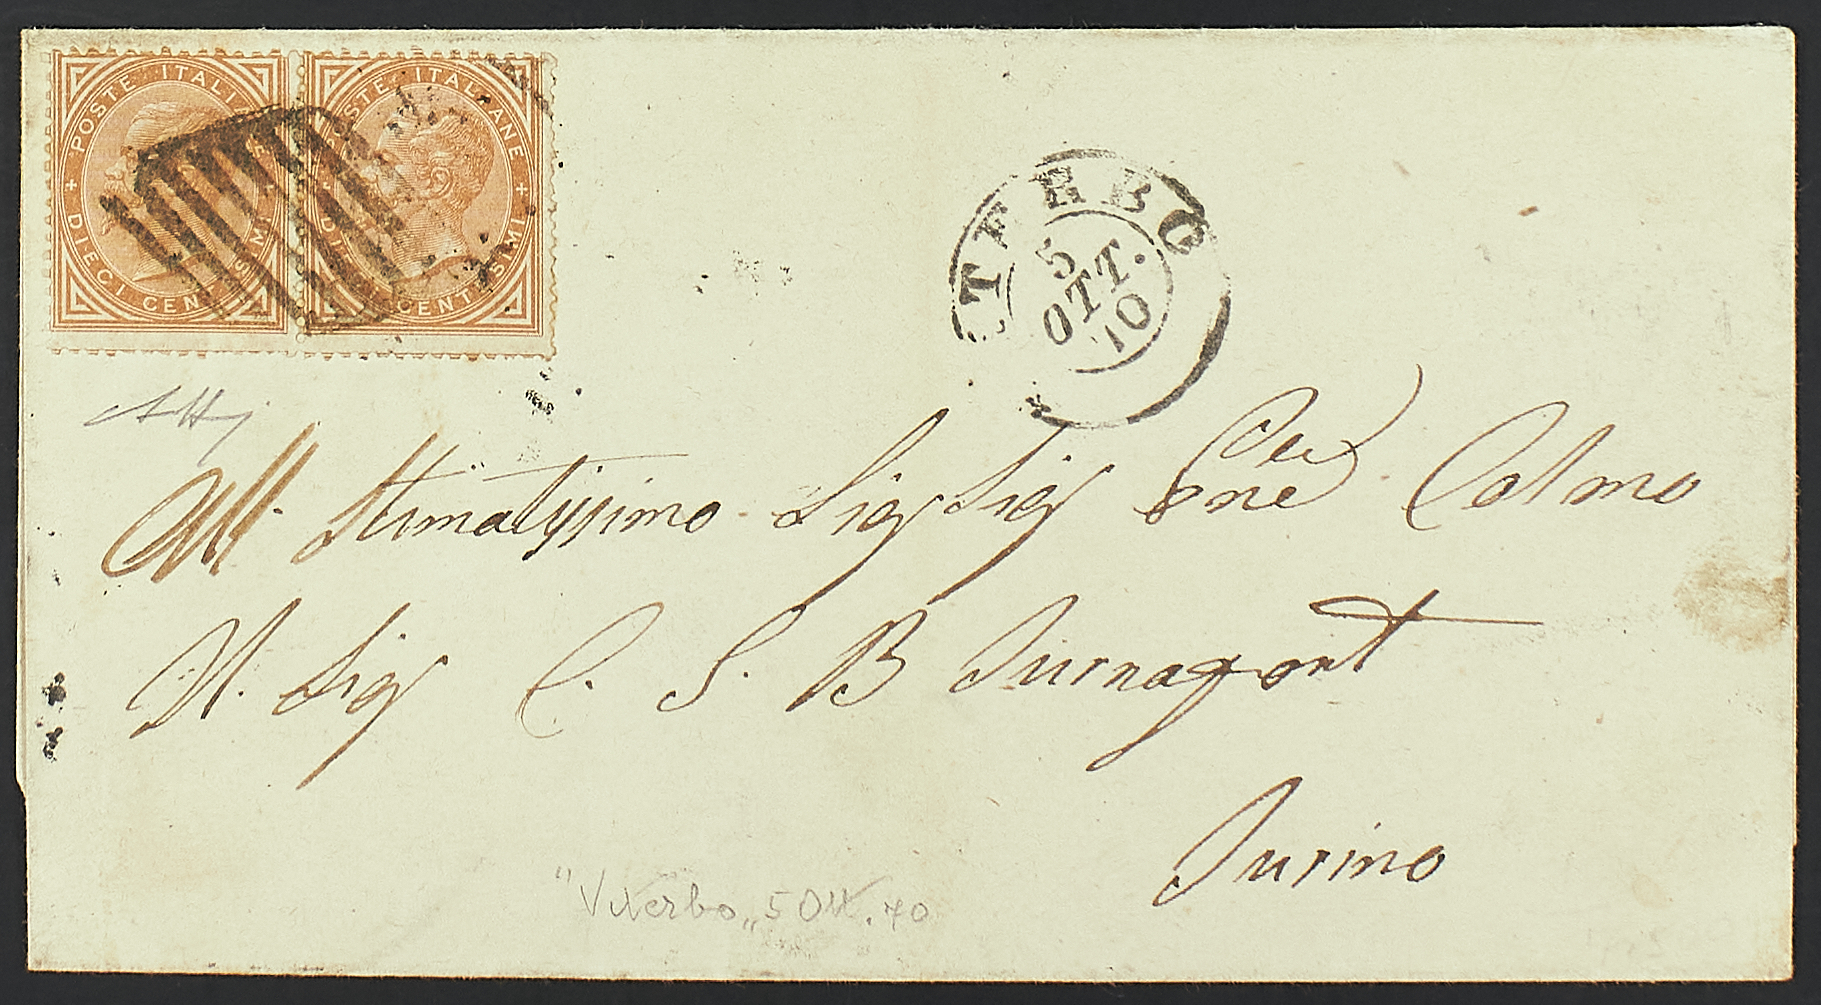 POSTE ITALIANE + DIECI CENTESIMI +
POSTE ITALIANE + DIECI CENTESIMI +
TERBO
5
OTT.
70
All. Stimatissimo Sig Sig
Il. Sig C. S. B
Turino
"Viterbo" 5 Ott. 70